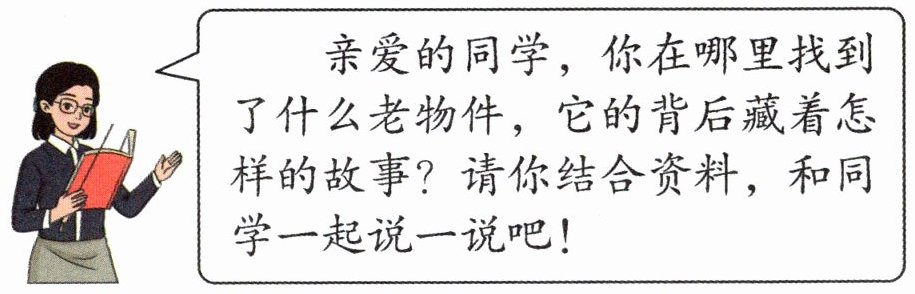 亲爱的同学，你在哪里找到
了什么老物件，它的背后藏着怎
样的故事？请你结合资料，和同
学一起说一说吧！